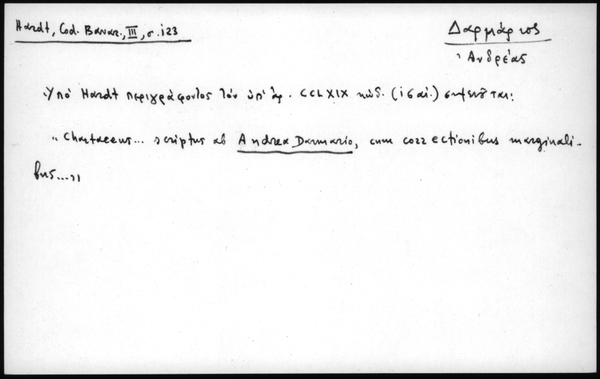 Hardt, Cod. Bavar., III, σ. 123
Δαρμάριος
Ἀνδρέας
Ὑπό Hardt περιγράφοντος τόν ὑπ' ἀρ. CCLXIX κώδ. (16 αἰ.) σημειοῦται:
"Chartaceus... scriptus ab Andrea Darmario, cum correctionibus marginali-
bus..."